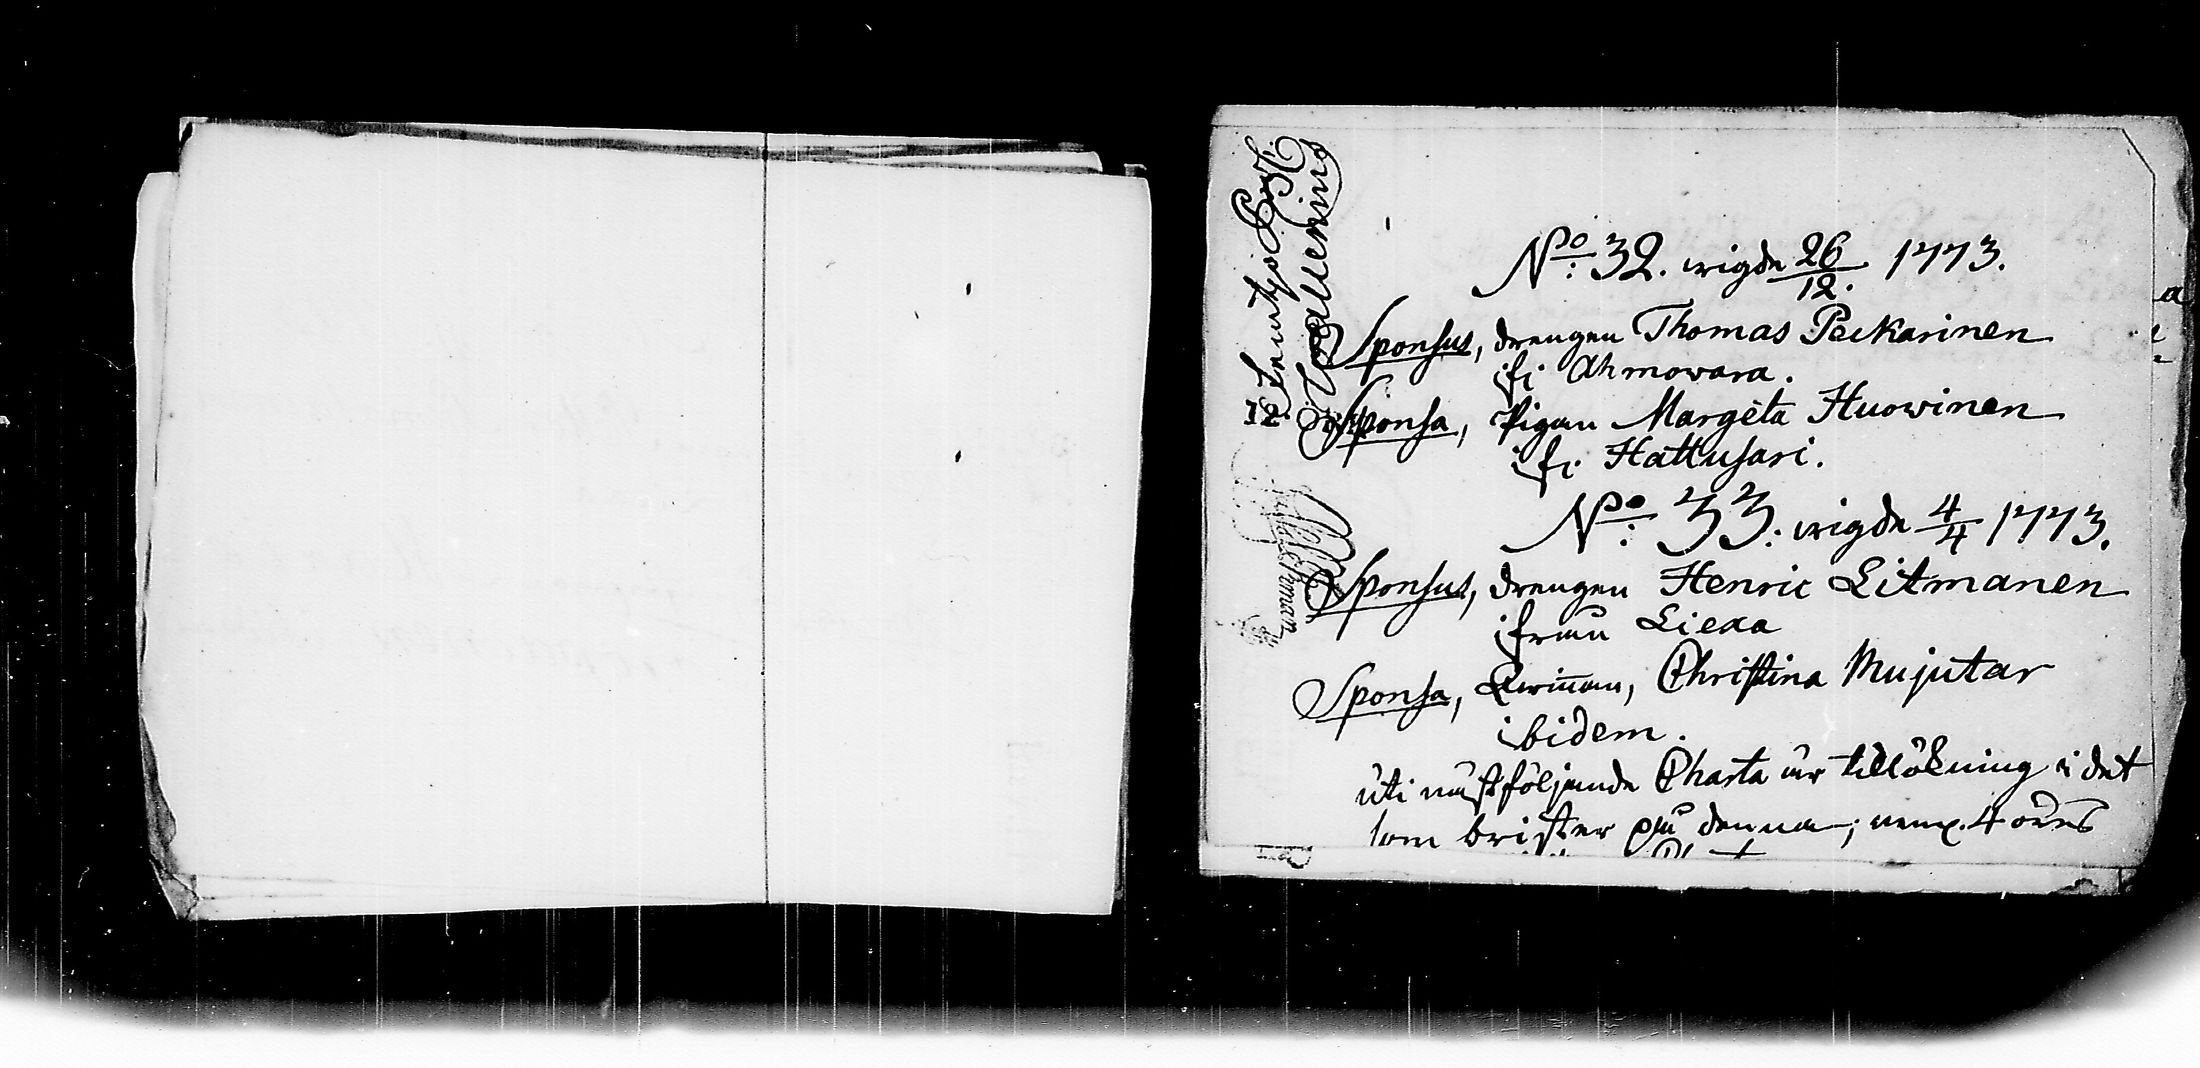 No: 32. wigde 26/12. 1773.
Sponsus, drengen Thomas Peckarinen
ifr Ahmowara.
Sponsa, Pigan Margeta Huowinen
ifr. Hattusari.
No: 33: wigde 4/4 1773.
Sponsus, drengen Henric Litmanen
ifrån Liexa
Sponsa, Qwinnan, Christina Mujutar
ibidem.
uti nästföljande Charta är tillökning i det
som brister på denna; neml. 4